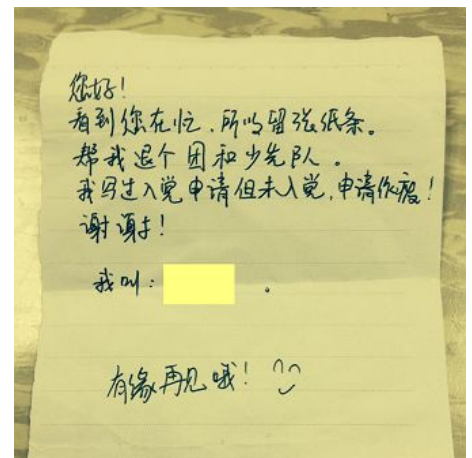 您好！
看到您在忙，所以留张纸条。
帮我退个团和少先队。
我写过入党申请但未入党，申请作废！
谢谢！
我叫：。
有缘再见哦！